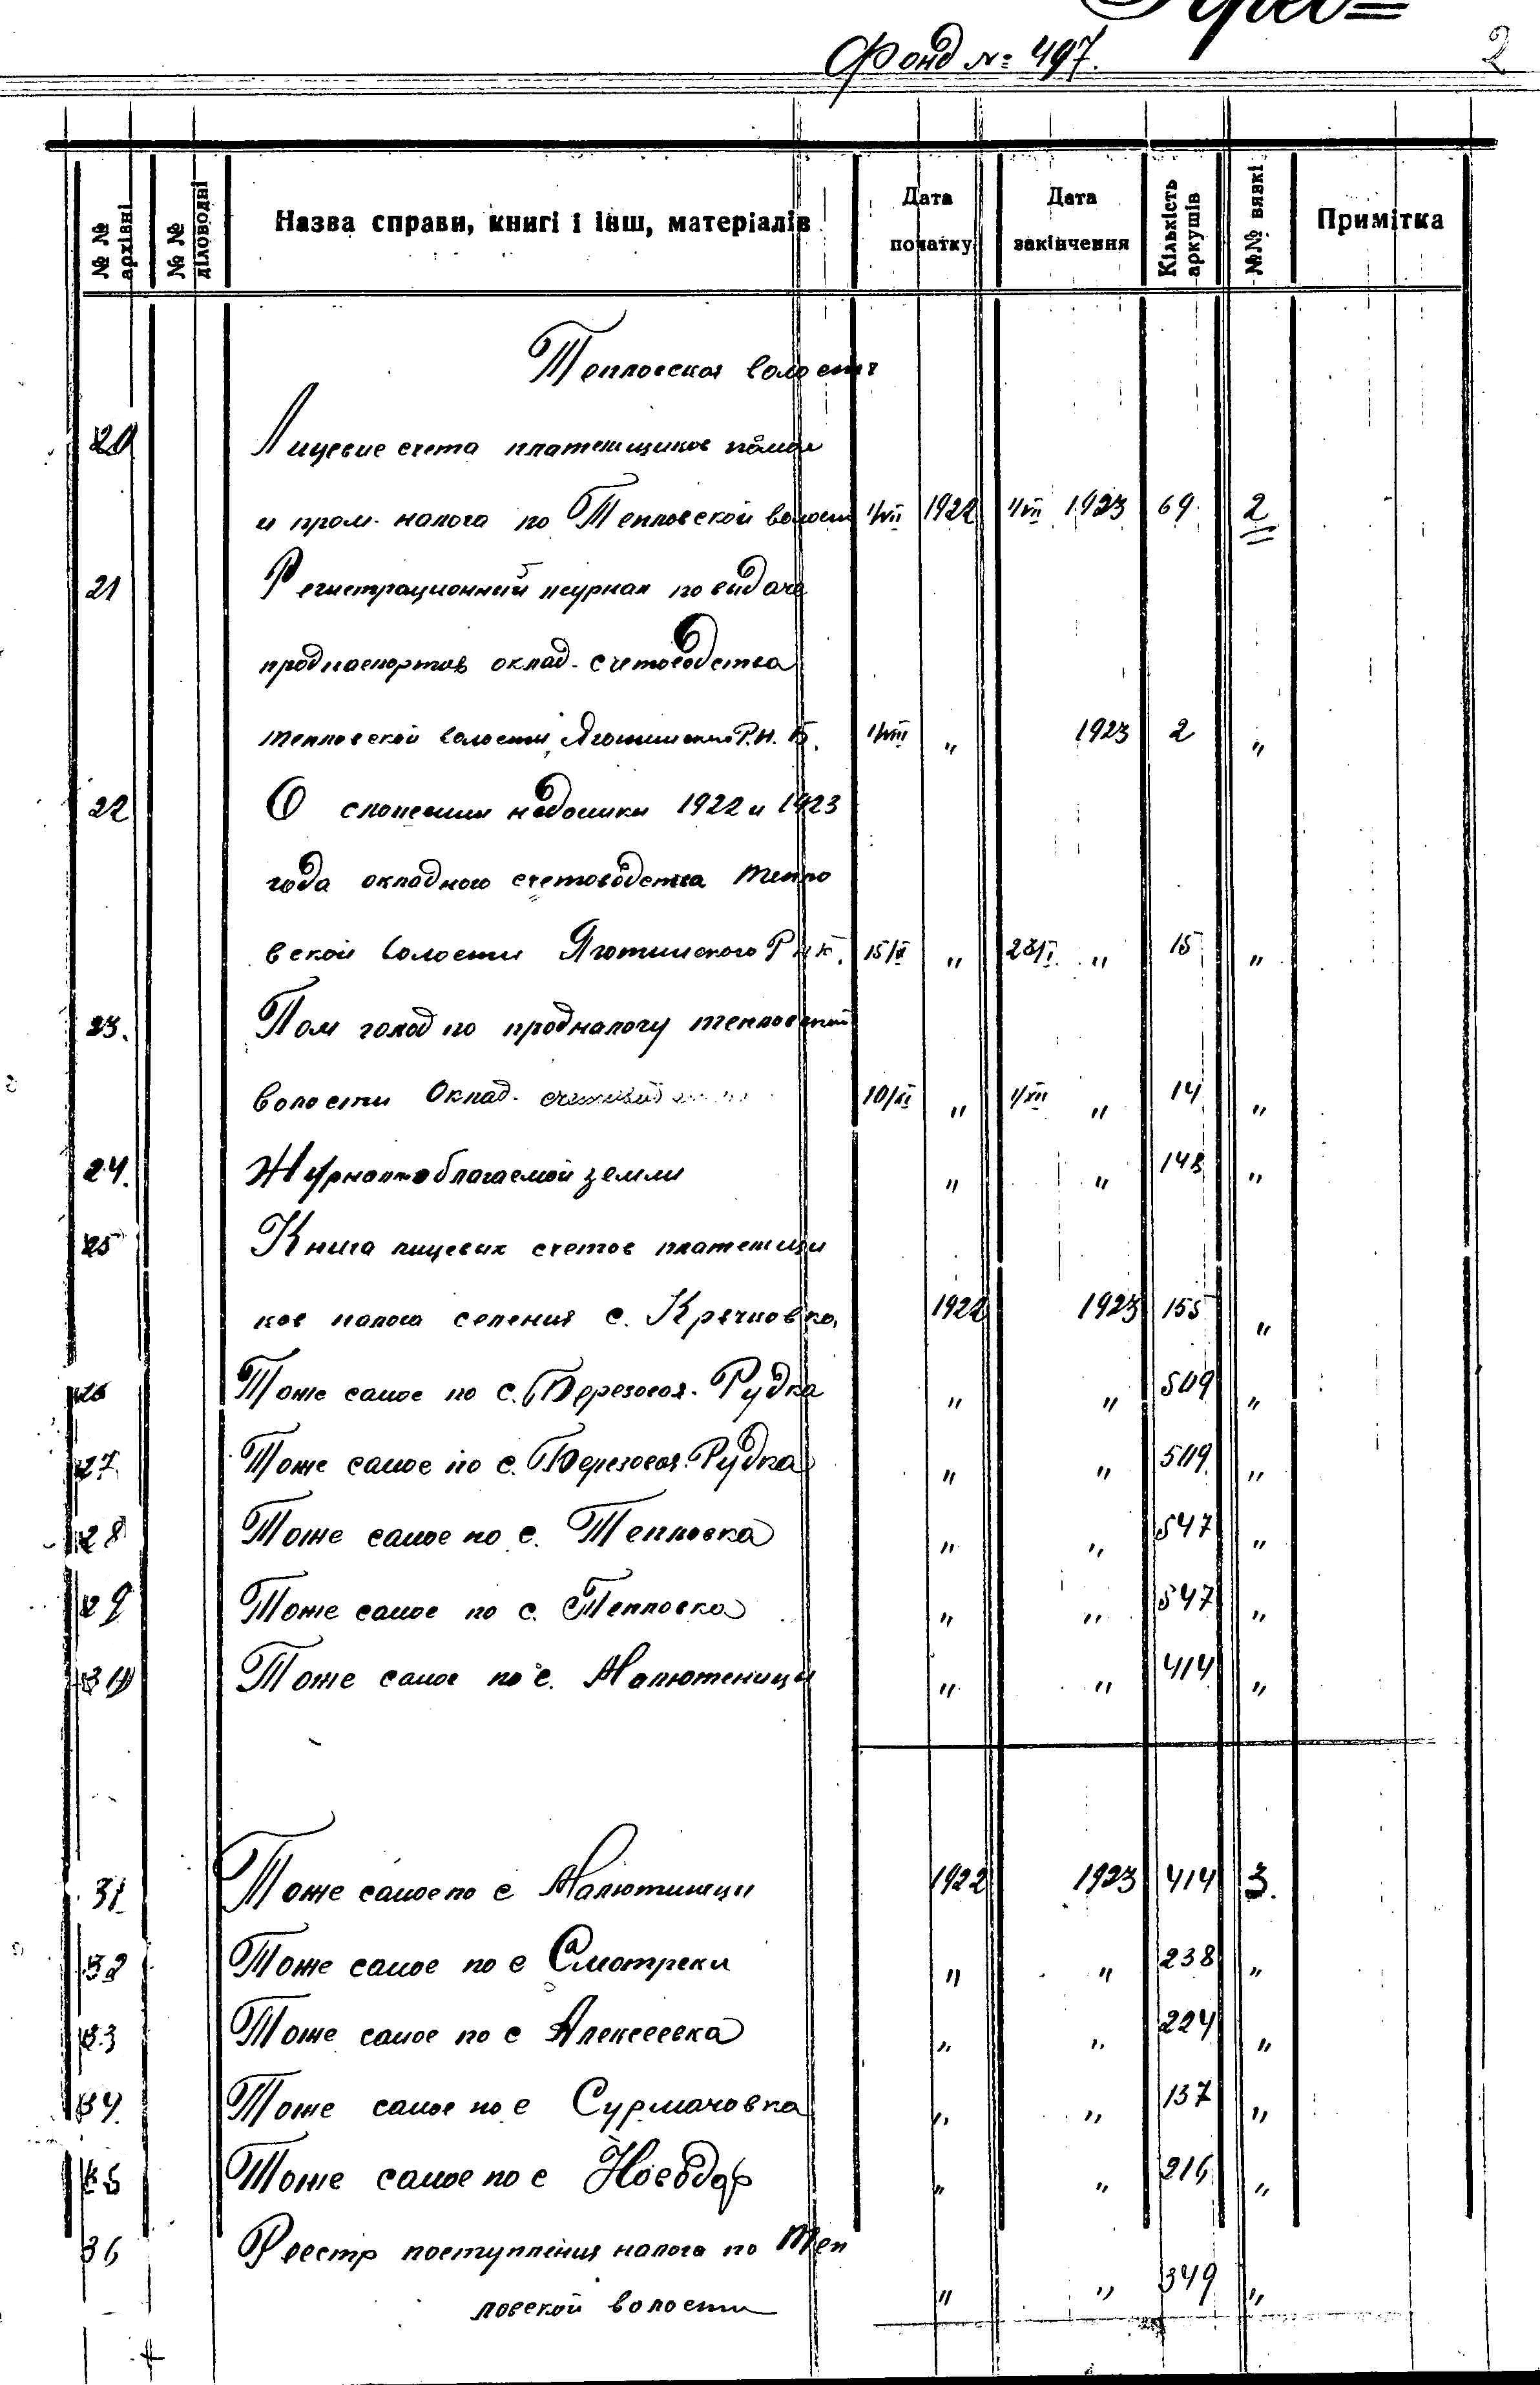 Фонд № 497.
2
№ № архівні
№ № діловодні
Назва справи, книгі і інш, матеріалів
Дата початку
Дата закінчення
Кількість аркушів
№№ вявкі
Примітка
Тепловская волость
20 Лицевие счета платещиков
и пром. налога по Тепловской волости 1/VII 1922 1/VII 1923 69 2
21 Регистрационний журнал по видаче
продпаспортов оклад. счетоводства
тепловской волости Яготинского Р.Н.К. 1/VIII " 1923 2 "
22 О сложении недоимки 1922 и 1923
года окладного счетоводства тепло
вской волости Яготинского Р Н К. " " 15 "
23. Пом голод по продналогу тепловской
волости Оклад. " " 14 "
24. Журнал облагаемой земли " " 148 "
25 Книга лицевих счетов платещи
ков налога селения с. Кречковка 1922 1923 155 "
26 Тоже самое по с. Березовая-Рудка " " 509 "
27. Тоже самое по с. Березовая-Рудка " " 509 "
28 Тоже самое по с. Тепловка " " 547 "
29 Тоже самое по с. Тепловка " " 547 "
30 Тоже самое по с. Малютенцы " " 414 "
31 Тоже самое по с Малютинци 1922 1923 414 3.
32 Тоже самое по с Смотреки " " 238 "
33 Тоже самое по с Алексеевка " " 224 "
34. Тоже самое по с Сурмачовка " " 137 "
35 Тоже самое по с " " 216 "
36 Реестр поступления налога по Теп
ловской волости " " 349 "